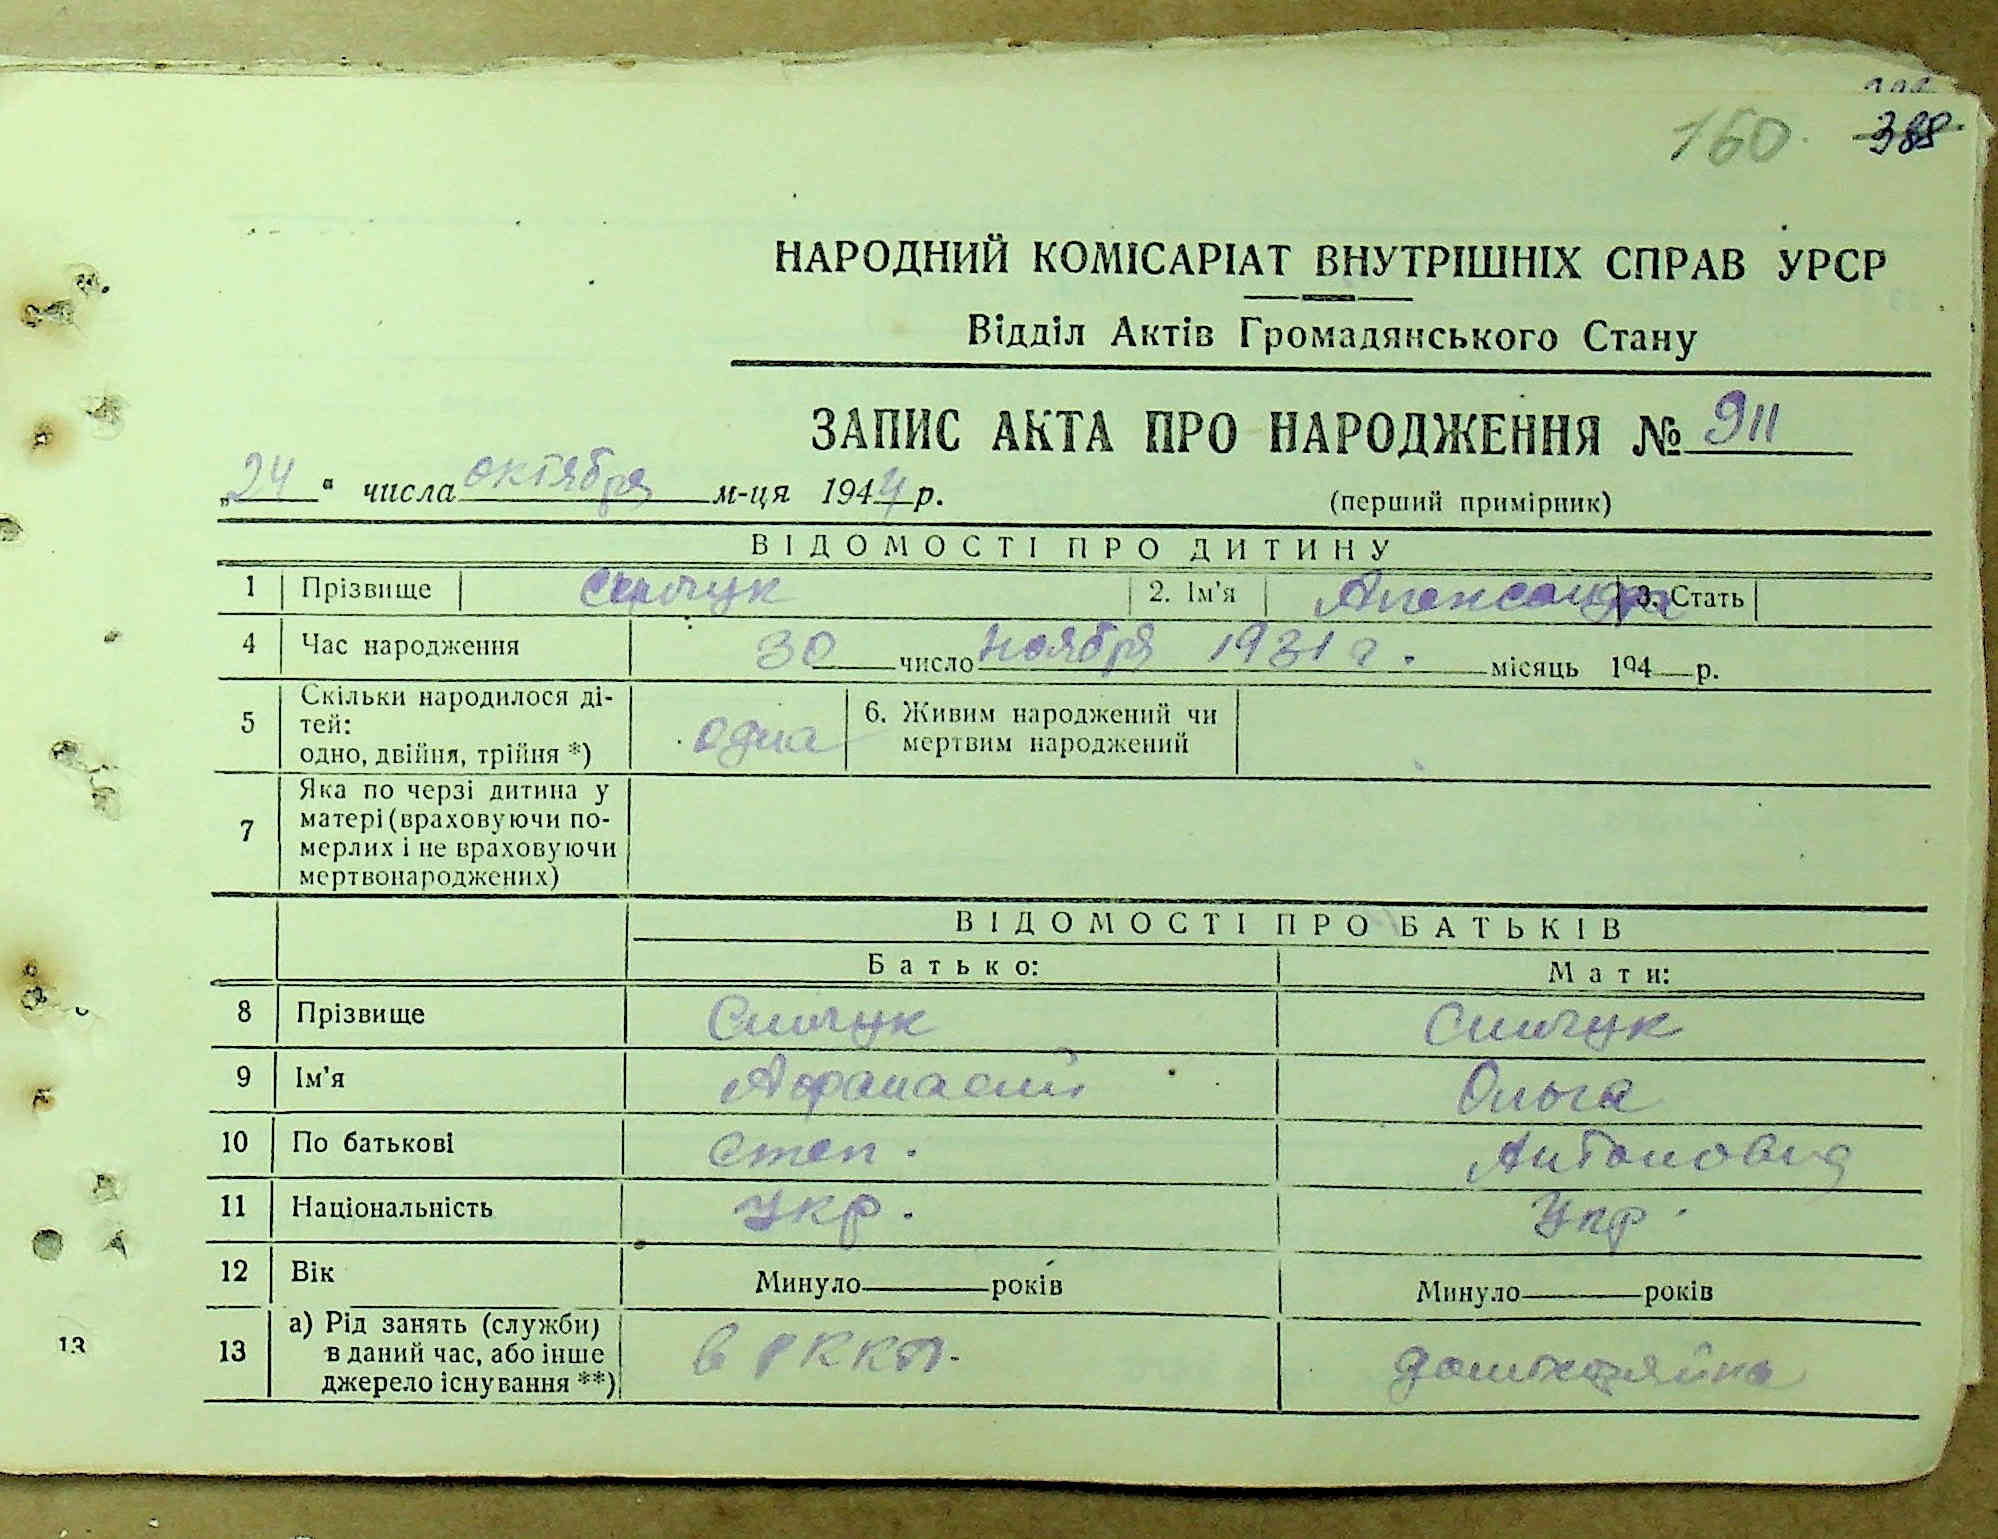 160. 388
НАРОДНИЙ КОМІСАРІАТ ВНУТРІШНІХ СПРАВ УРСР
Відділ Актів Громадянського Стану
ЗАПИС АКТА ПРО НАРОДЖЕННЯ № 911
„24“ числа октября м-ця 1944 р. (перший примірник)
ВІДОМОСТІ ПРО ДИТИНУ
1 Прізвище 2. Ім'я Александр 3. Стать
4 Час народження 30 число ноября 1931 г. місяць 194 р.
5 Скільки народилося ді-
тей:
одно, двійня, трійня *) одна 6. Живим народжений чи
мертвим народжений
7 Яка по черзі дитина у
матері (враховуючи по-
мерлих і не враховуючи
мертвонароджених)
ВІДОМОСТІ ПРО БАТЬКІВ
Батько: Мати:
8 Прізвище Симчук Симчук
9 Ім'я Афанасий Ольга
10 По батькові Степ. Антоновна
11 Національність Укр. Укр.
12 Вік Минуло років Минуло років
13 а) Рід занять (служби)
в даний час, або інше
джерело існування **) в РККА. домохозяйка
13